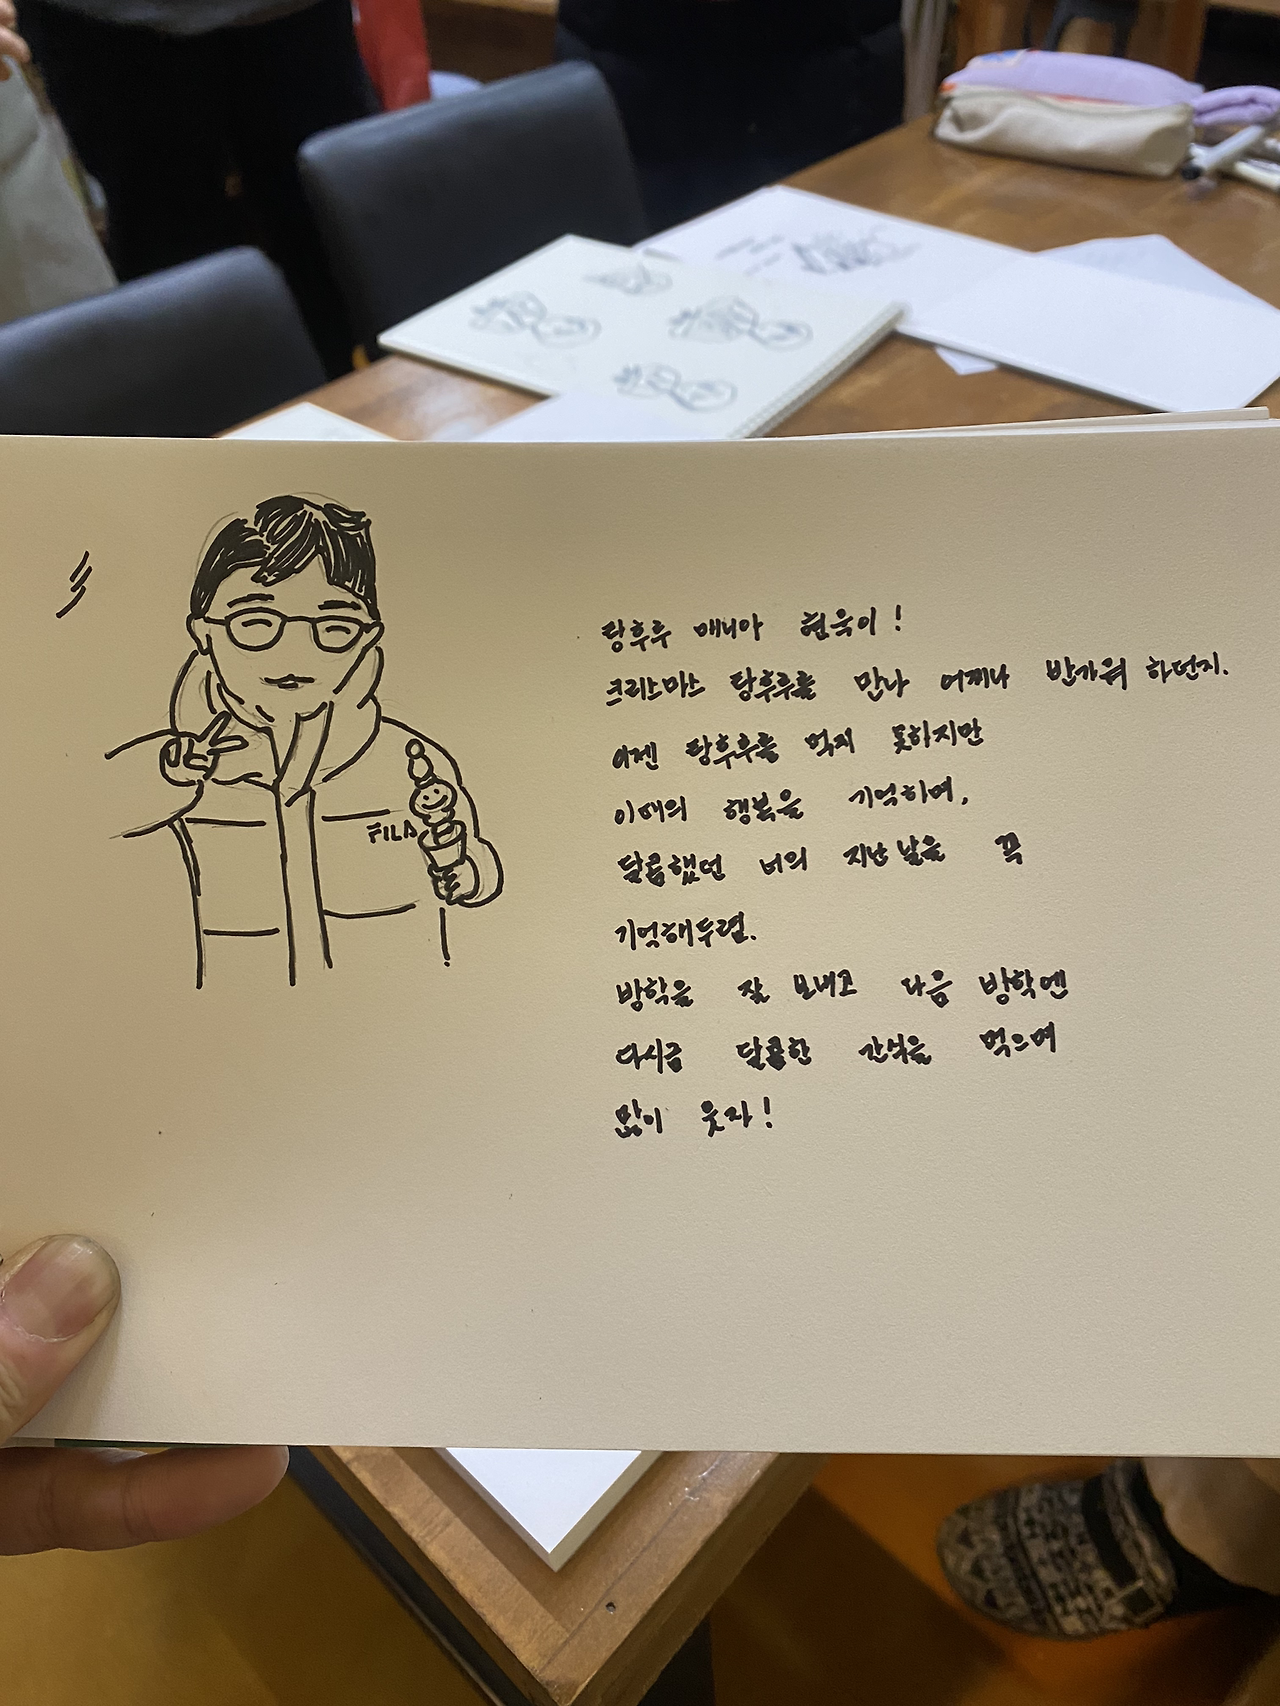 FILA
탕후루 매니아 현욱이!
크리스마스 탕후루를 만나 어찌나 반가워 하던지.
이젠 탕후루를 먹지 못하지만
이때의 행복을 기억하며,
달콤했던 너의 지난날을 꼭
기억해두렴.
방학을 잘 보내고 다음 방학엔
다시금 달콤한 간식을 먹으며
많이 웃자!